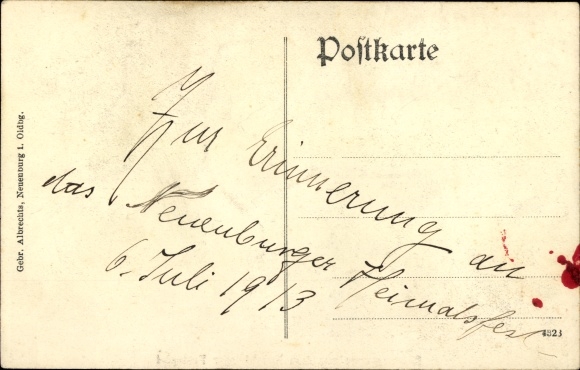 Postkarte
Zur Erinnerung an
das Neuenburger Heimatsfest
6. Juli 1913
Gebr. Albrechts, Neuenburg i. Oldbg.
4823